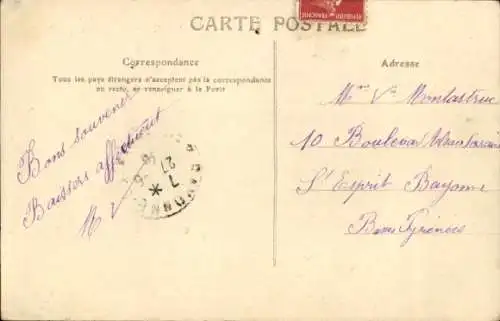 CARTE POSTALE
Correspondance
Tous les pays étrangers n'acceptent pas la correspondance
au recto, se renseigner à la Poste
Adresse
Bons souvenirs
Baisers affectueux
M
Mme Vve Montastruc
10 Boulevard
St Esprit Bayonne
Basses Pyrénées